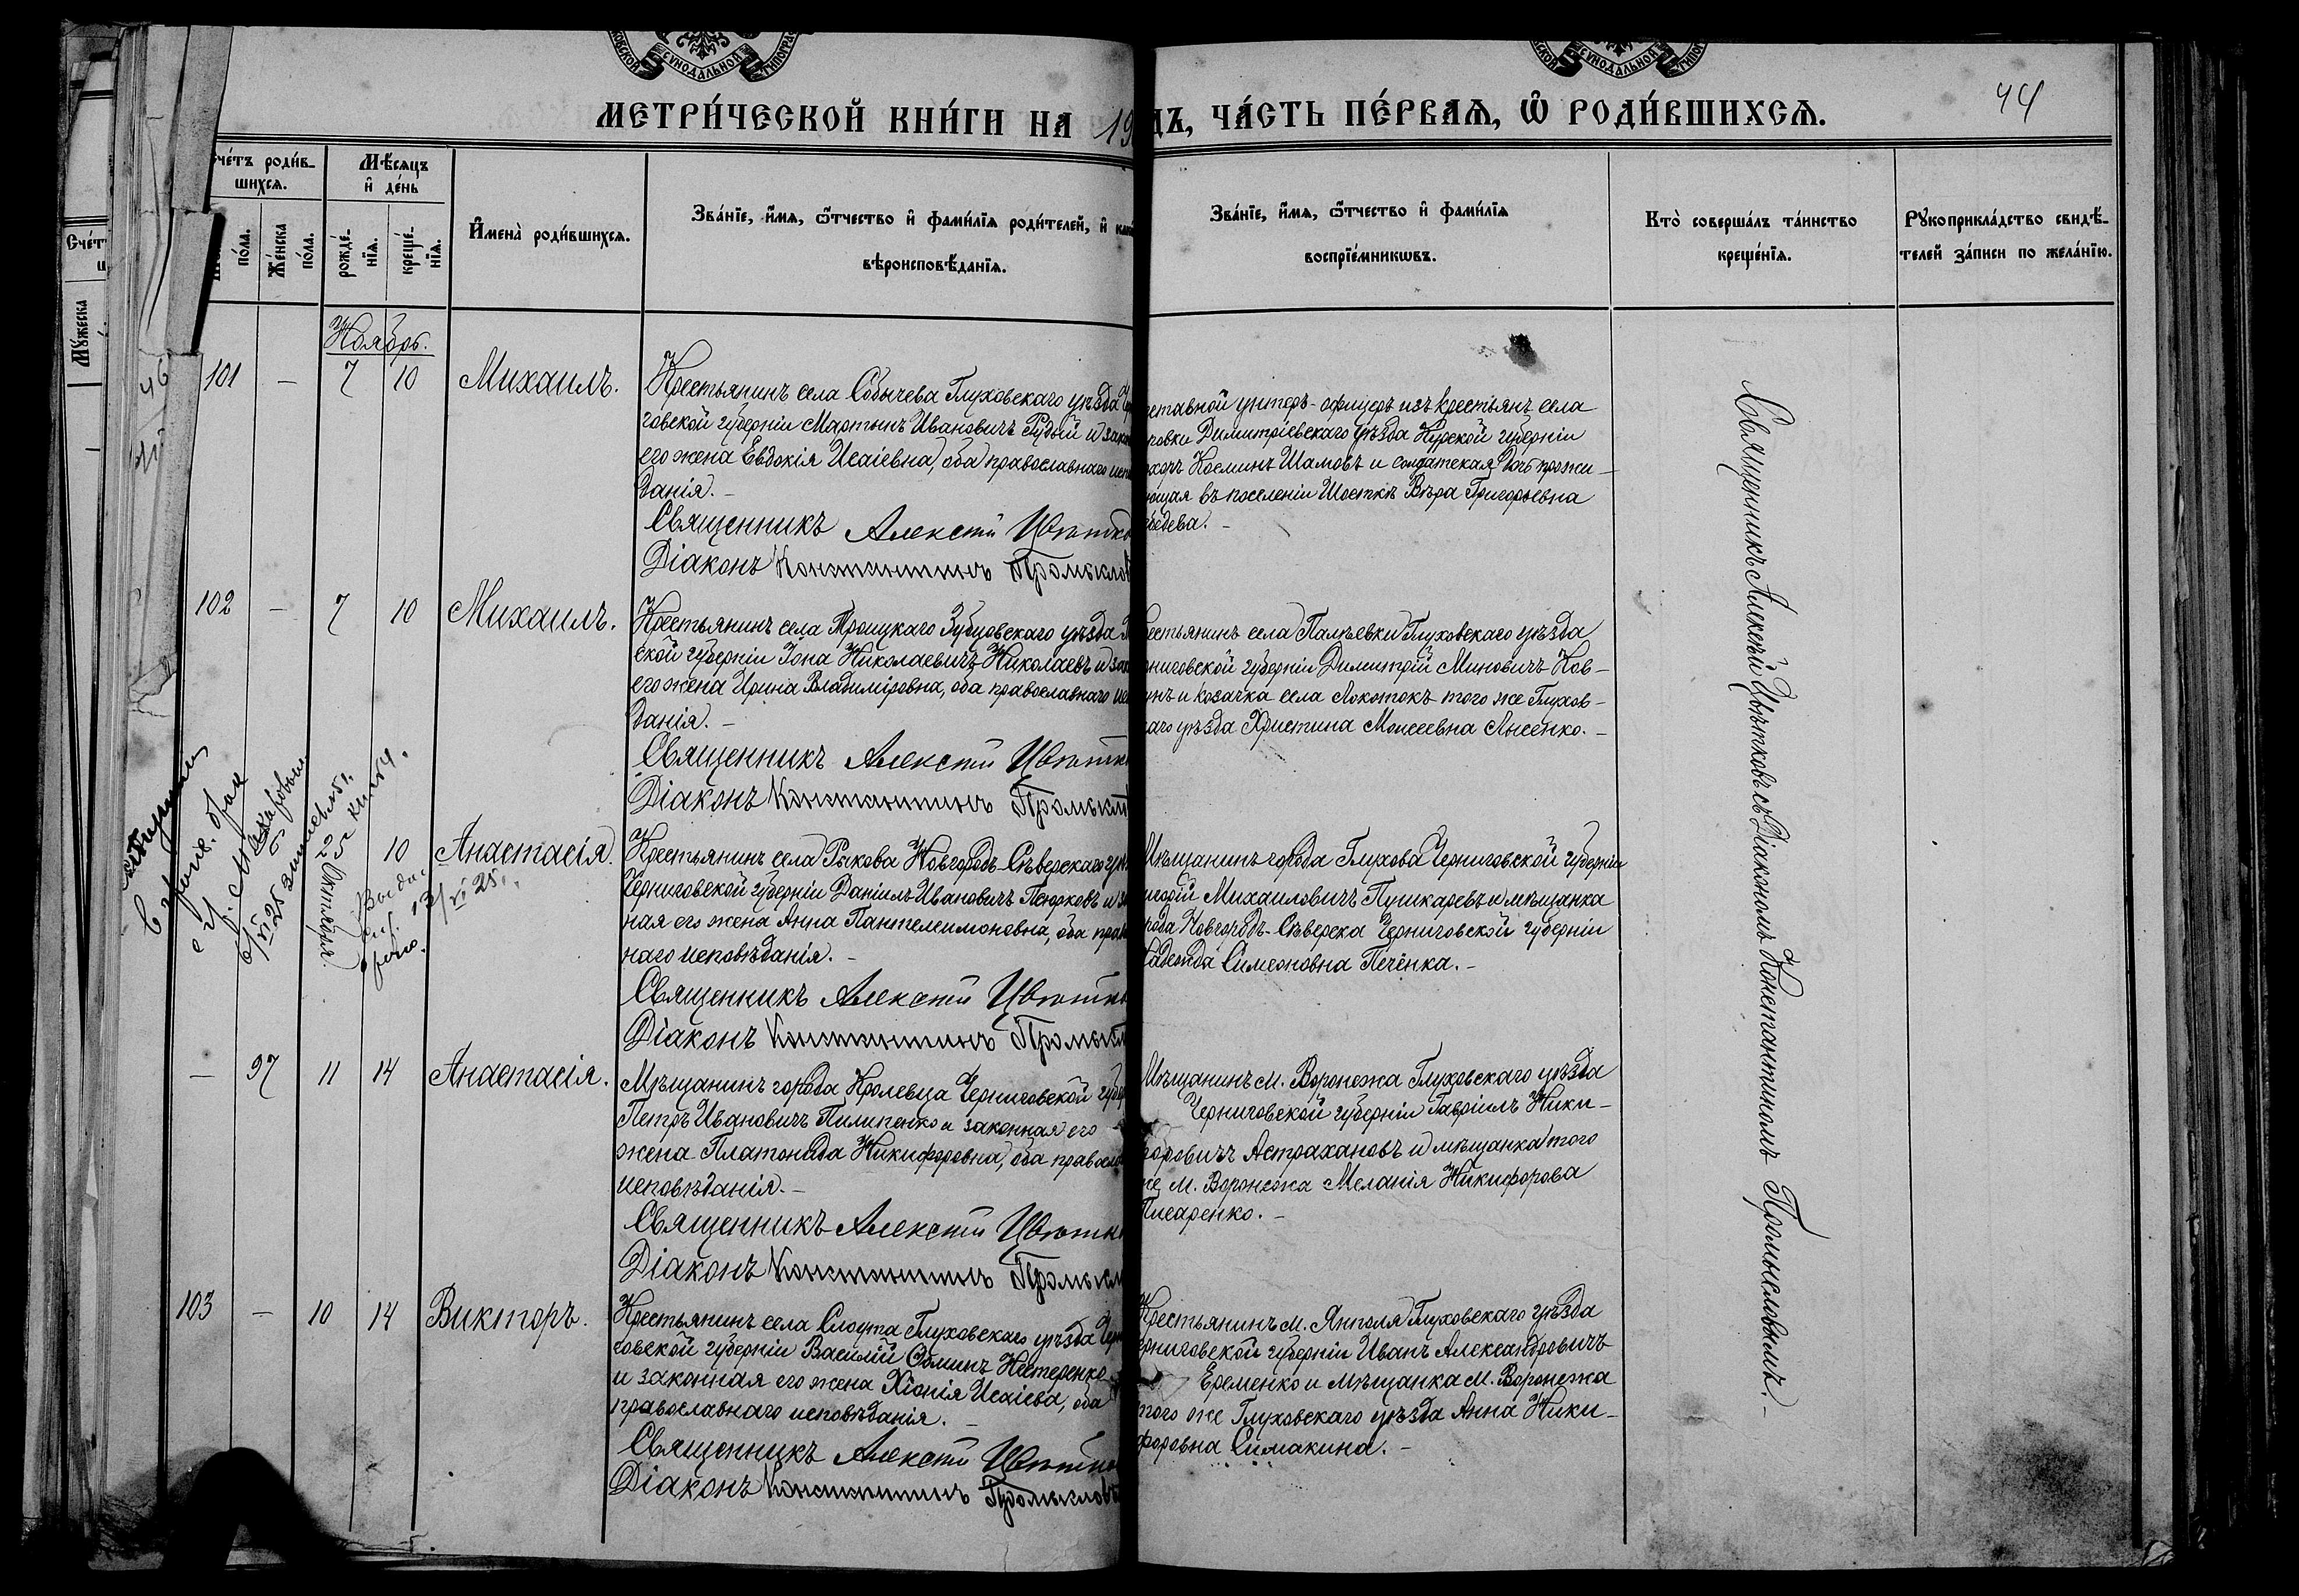 СѴНОДАЛЬНОЙ
СѴНОДАЛЬНОЙ
МЕТРИ́ЧЕСКОЙ КНИ́ГИ НА 19
ДЪ, ЧА́СТЬ ПЕ́РВАѦ, Ѡ҆ РОДИ́ВШИХСѦ.
44
счéтъ роди́в-
шихсѧ.
Мѣ́сѧцъ
и҆ де́нь
по́ла.
Же́нска
по́ла.
рожде́-
нїѧ.
креще́-
нїѧ.
И҆мена̀ роди́вшихсѧ.
Зва́нїе, и҆́мѧ, ѻ҆́тчество и҆ фами́лїѧ роди́телей, и҆
вѣроисповѣ́данїѧ.
Зва́нїе, и҆́мѧ, ѻ҆́тчество и҆ фами́лїѧ
воспрїе́мникѡвъ.
Кто̀ соверша́лъ та́инство
креще́нїѧ.
Рꙋкоприкла́дство свидѣ́-
телей за́писи по жела́нїю.
Счéт
Мꙋ́жеска
Ноябрь.
101 - 7 10 Михаилъ.
Крестьянинъ села Собычева Глуховскаго уѣзда
говской губерніи Мартынъ Ивановичъ Рудый и
его жена Евдокія Исаіевна, оба православнаго
данія. -
Священникъ Алексѣй Цвѣтко
Діаконъ Константинъ Промыслов
ставной унтеръ-офицеръ изъ крестьянъ села
Димитріевскаго уѣзда Курской губерніи
Косминъ Шамовъ и солдатская дочь прожи-
ющая въ поселеніи Шосткѣ Вѣра Григорьевна
бедева. -
102 - 7 10 Михаилъ.
Крестьянинъ села Троицкаго Зубцовскаго уѣзда
ской губерніи Іона Николаевичъ Николаевъ и
его жена Ирина Владиміровна, оба православнаго
данія. -
Священникъ Алексѣй Цвѣтк
Діаконъ Константинъ Промысл
рестьянинъ села Палѣевки Глуховскаго уѣзда
рниговской губерніи Димитрій Миновичъ Ков-
унъ и козачка села Локотокъ того же Глухов-
каго уѣзда Христина Моисеевна Лысенко. -
с
6/VI 25
29 Октября
10 Анастасія.
13/VI 25.
Крестьянинъ села Рыкова Новгородъ-Сѣверскаго
Черниговской губерніи Даніилъ Ивановичъ Пенюрковъ и
ная его жена Анна Пантелеимоновна, оба прав
наго исповѣданія. -
Священникъ Алексѣй Цвѣтк
Діаконъ Константинъ Промысл
Мѣщанинъ города Глухова Черниговской губерніи
Михаиловичъ Пушкаревъ и мѣщанка
рода Новгородъ-Сѣверска Черниговской губерніи
Надежда Симеоновна Печёнка. -
- 97 11 14 Анастасія.
Мѣщанинъ города Кролевца Черниговской губер
Петръ Ивановичъ Пилипенко и законная его
жена Платонида Никифоровна, оба правосла
исповѣданія. -
Священникъ Алексѣй Цвѣтк
Діаконъ Константинъ Промысл
Мѣщанинъ м. Воронежа Глуховскаго уѣзда
Черниговской губерніи Гавріилъ Ники-
форовичъ Астрахановъ и мѣщанка того
же м. Воронежа Меланія Никифорова
Писаренко. -
103 - 10 14 Викторъ.
Крестьянинъ села Слоута Глуховскаго уѣзда Чер
говской губерніи Василій Ѳоминъ Нестеренко
и законная его жена Хіонія Исаіева, оба
православнаго исповѣданія. -
Священникъ Алексѣй Цвѣтко
Діаконъ Константинъ Промыслов
Крестьянинъ м. Янполя Глуховскаго уѣзда
рниговской губерніи Иванъ Александровичъ
Еременко и мѣщанка м. Воронежа
того же Глуховскаго уѣзда Анна Ники-
форовна Симакина. -
Священникъ Алексѣй Цвѣтковъ съ Діакономъ Константиномъ Промысловымъ. -